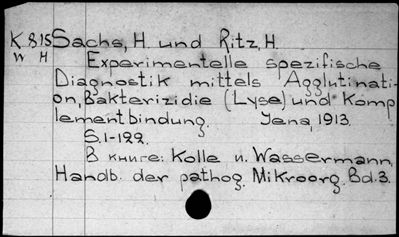 K 815 Sachs, H. und Ritz, H.
W H Experimentelle spezifische
Diagnostik mittels Agglutinati-
on, Bakterizidie (Lyse) und Komp
lementbindung. Jena, 1913.
S. 1-199.
В книге: Kolle u. Wassermann,
Handb. der pathog. Mikroorg. Bd. 3.